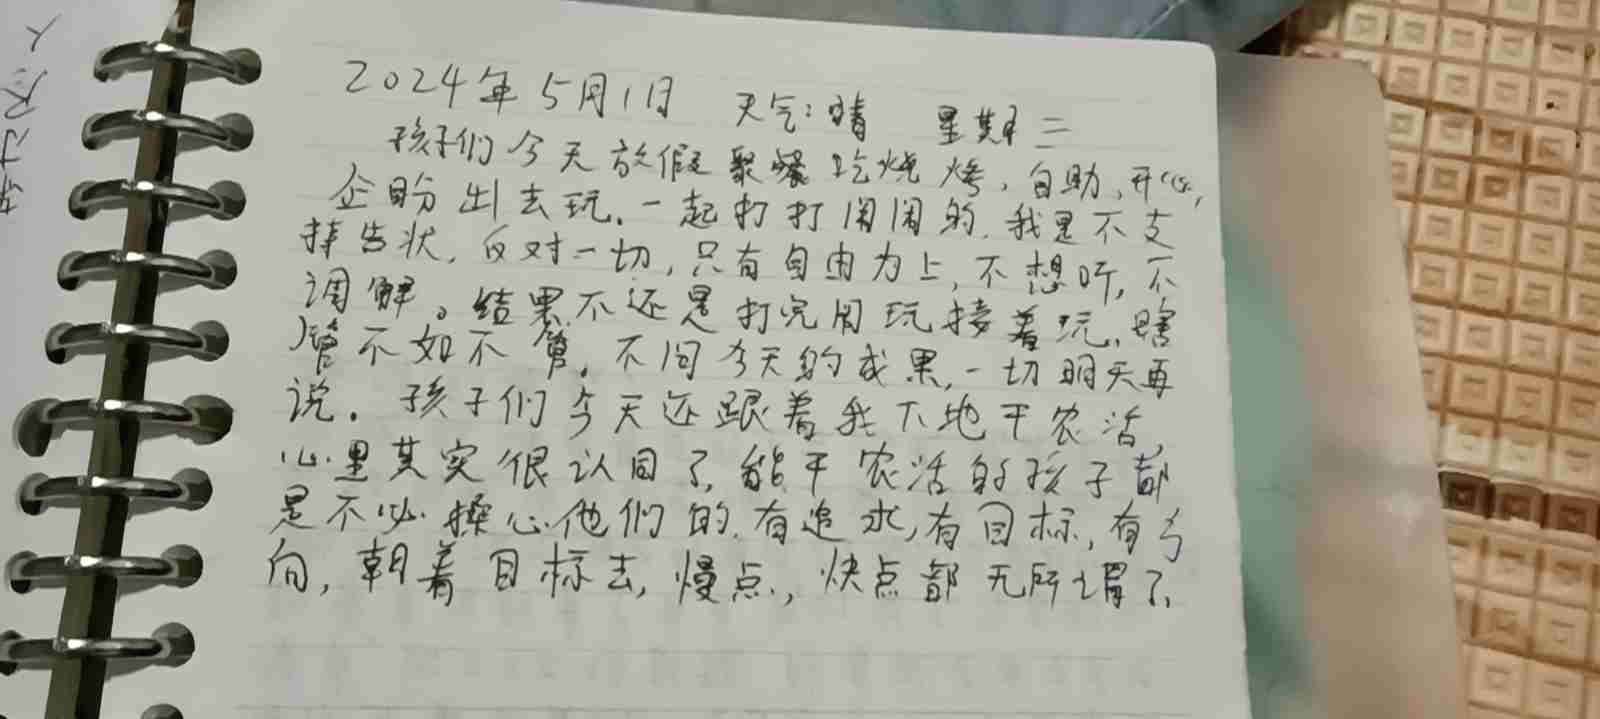 2024年5月1日 天气:晴 星期三
孩子们今天放假聚餐吃烧烤,自助,开心,
企盼出去玩.一起打打闹闹的.我是不支
持告状,反对一切,只有自由为上,不想听,不
调解。结果不还是打完闹玩接着玩,瞎
管不如不管。不问今天的成果,一切明天再
说.孩子们今天还跟着我下地干农活,
心里其实很认同了,能干农活的孩子都
是不必操心他们的.有追求,有目标,有方
向,朝着目标去,慢点,快点都无所谓了,